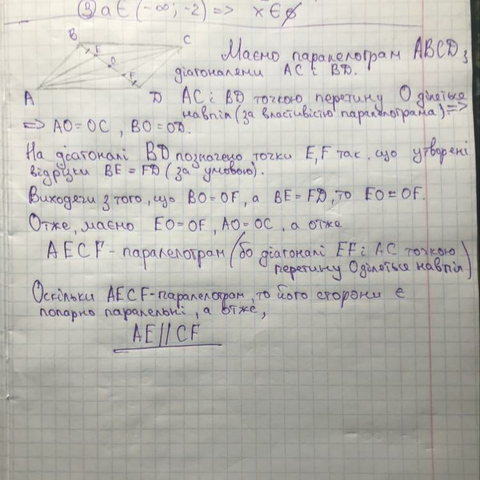 ③ a ∈ (-∞; -2) => x ∈ ∅
B C
E O F
A D
Маємо паралелограм ABCD з
діагоналями AC і BD.
AC і BD точкою перетину O ділеться
навпіл (за властивістю паралелограма) =>
=> AO = OC, BO = OD.
На діагоналі BD позначено точки E, F так, що утворені
відрізки BE = FD (за умовою).
Виходячи з того, що BO = OF, а BE = FD, то EO = OF.
Отже, маємо EO = OF, AO = OC, а отже
AECF - паралелограм (бо діагоналі EF і AC точкою
перетину O ділеться навпіл)
Оскільки AECF - паралелограм, то його сторони є
попарно паралельні, а отже,
AE || CF